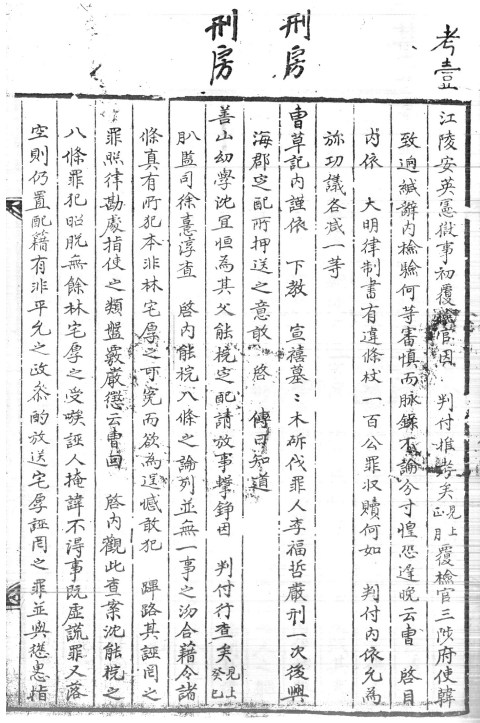 考壹
刑房
刑房
江陵安英憲獄事初覆檢官因 判付推考矣見上正月覆檢官三陟府使韓
致逈緘辭內檢驗何等審慎而脉錄不論分寸惶恐遲晚云曹 啓目
內依 大明律制書有違條杖一百公罪收贖何如 判付內依允為
㫆功議各減一等
曹草記內謹依 下敎 宣禧墓〻木斫伐罪人李福哲嚴刑一次後興
海郡定配所押送之意敢 啓 傳曰知道
善山幼學沈宜恒為其父能梡定配請放事擊錚因 判付行查矣見上癸巳
臥監司徐憙淳查 啓內能梡八條之論列並無一事之沕合藉令諸
條真有所犯本非林宅厚之可冤而欲為逞憾敢犯 蹕路其誣罔之
罪照律勘處指使之類盤覈嚴懲云曹回 啓內觀此查案沈能梡之
八條罪犯昭脫無餘林宅厚之受嗾誣人掩諱不得事旣虛謊罪又落
空則仍置配籍有非平允之政叅酌放送宅厚誣罔之罪並與慫恿指